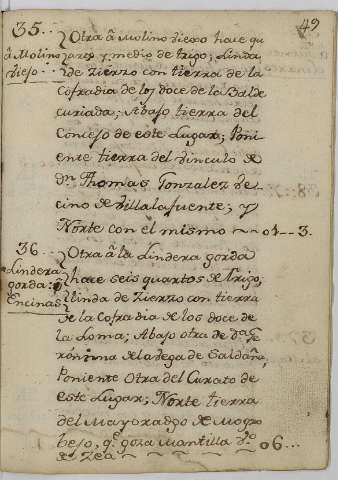 49
35...
â Molino
Viejo...
Otra â Molino Viexo hace qu
arto y medio de trigo; Linda
de zierzo con tierra de la
Cofradia de los doce de la Balde
curiada; Abajo tierra del
Consejo de este Lugar; Poni
ente tierra del Vinculo de
Dn. Thomas Gonzalez Ve
cino de Villalafuente; y
Norte con el mismo ~ ~ 01--3.
36..
Lindera
gorda:
Encinas
Otra â la Lindera gorda
hace seis quartos de Trigo;
linda de Zierzo con tierra
de la Cofradia de los doce de
la Loma; Abajo otra de Da. Ge
rónima de la Vega de Saldaña,
Poniente Otra del Curato de
este Lugar; Norte tierra
del Mayoradgo de Mogro
bejo, qe. goza Mantilla Vo.
de Zea ~ ~ ~ ~ 06...